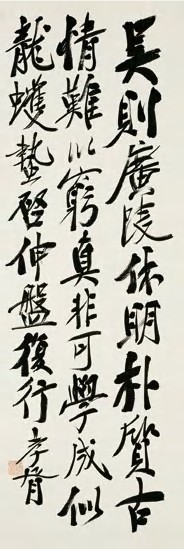 吳則廣陵休明朴質古
情難以窮真非可學成似
龍蠖蟄啓伸盤復行孝胥